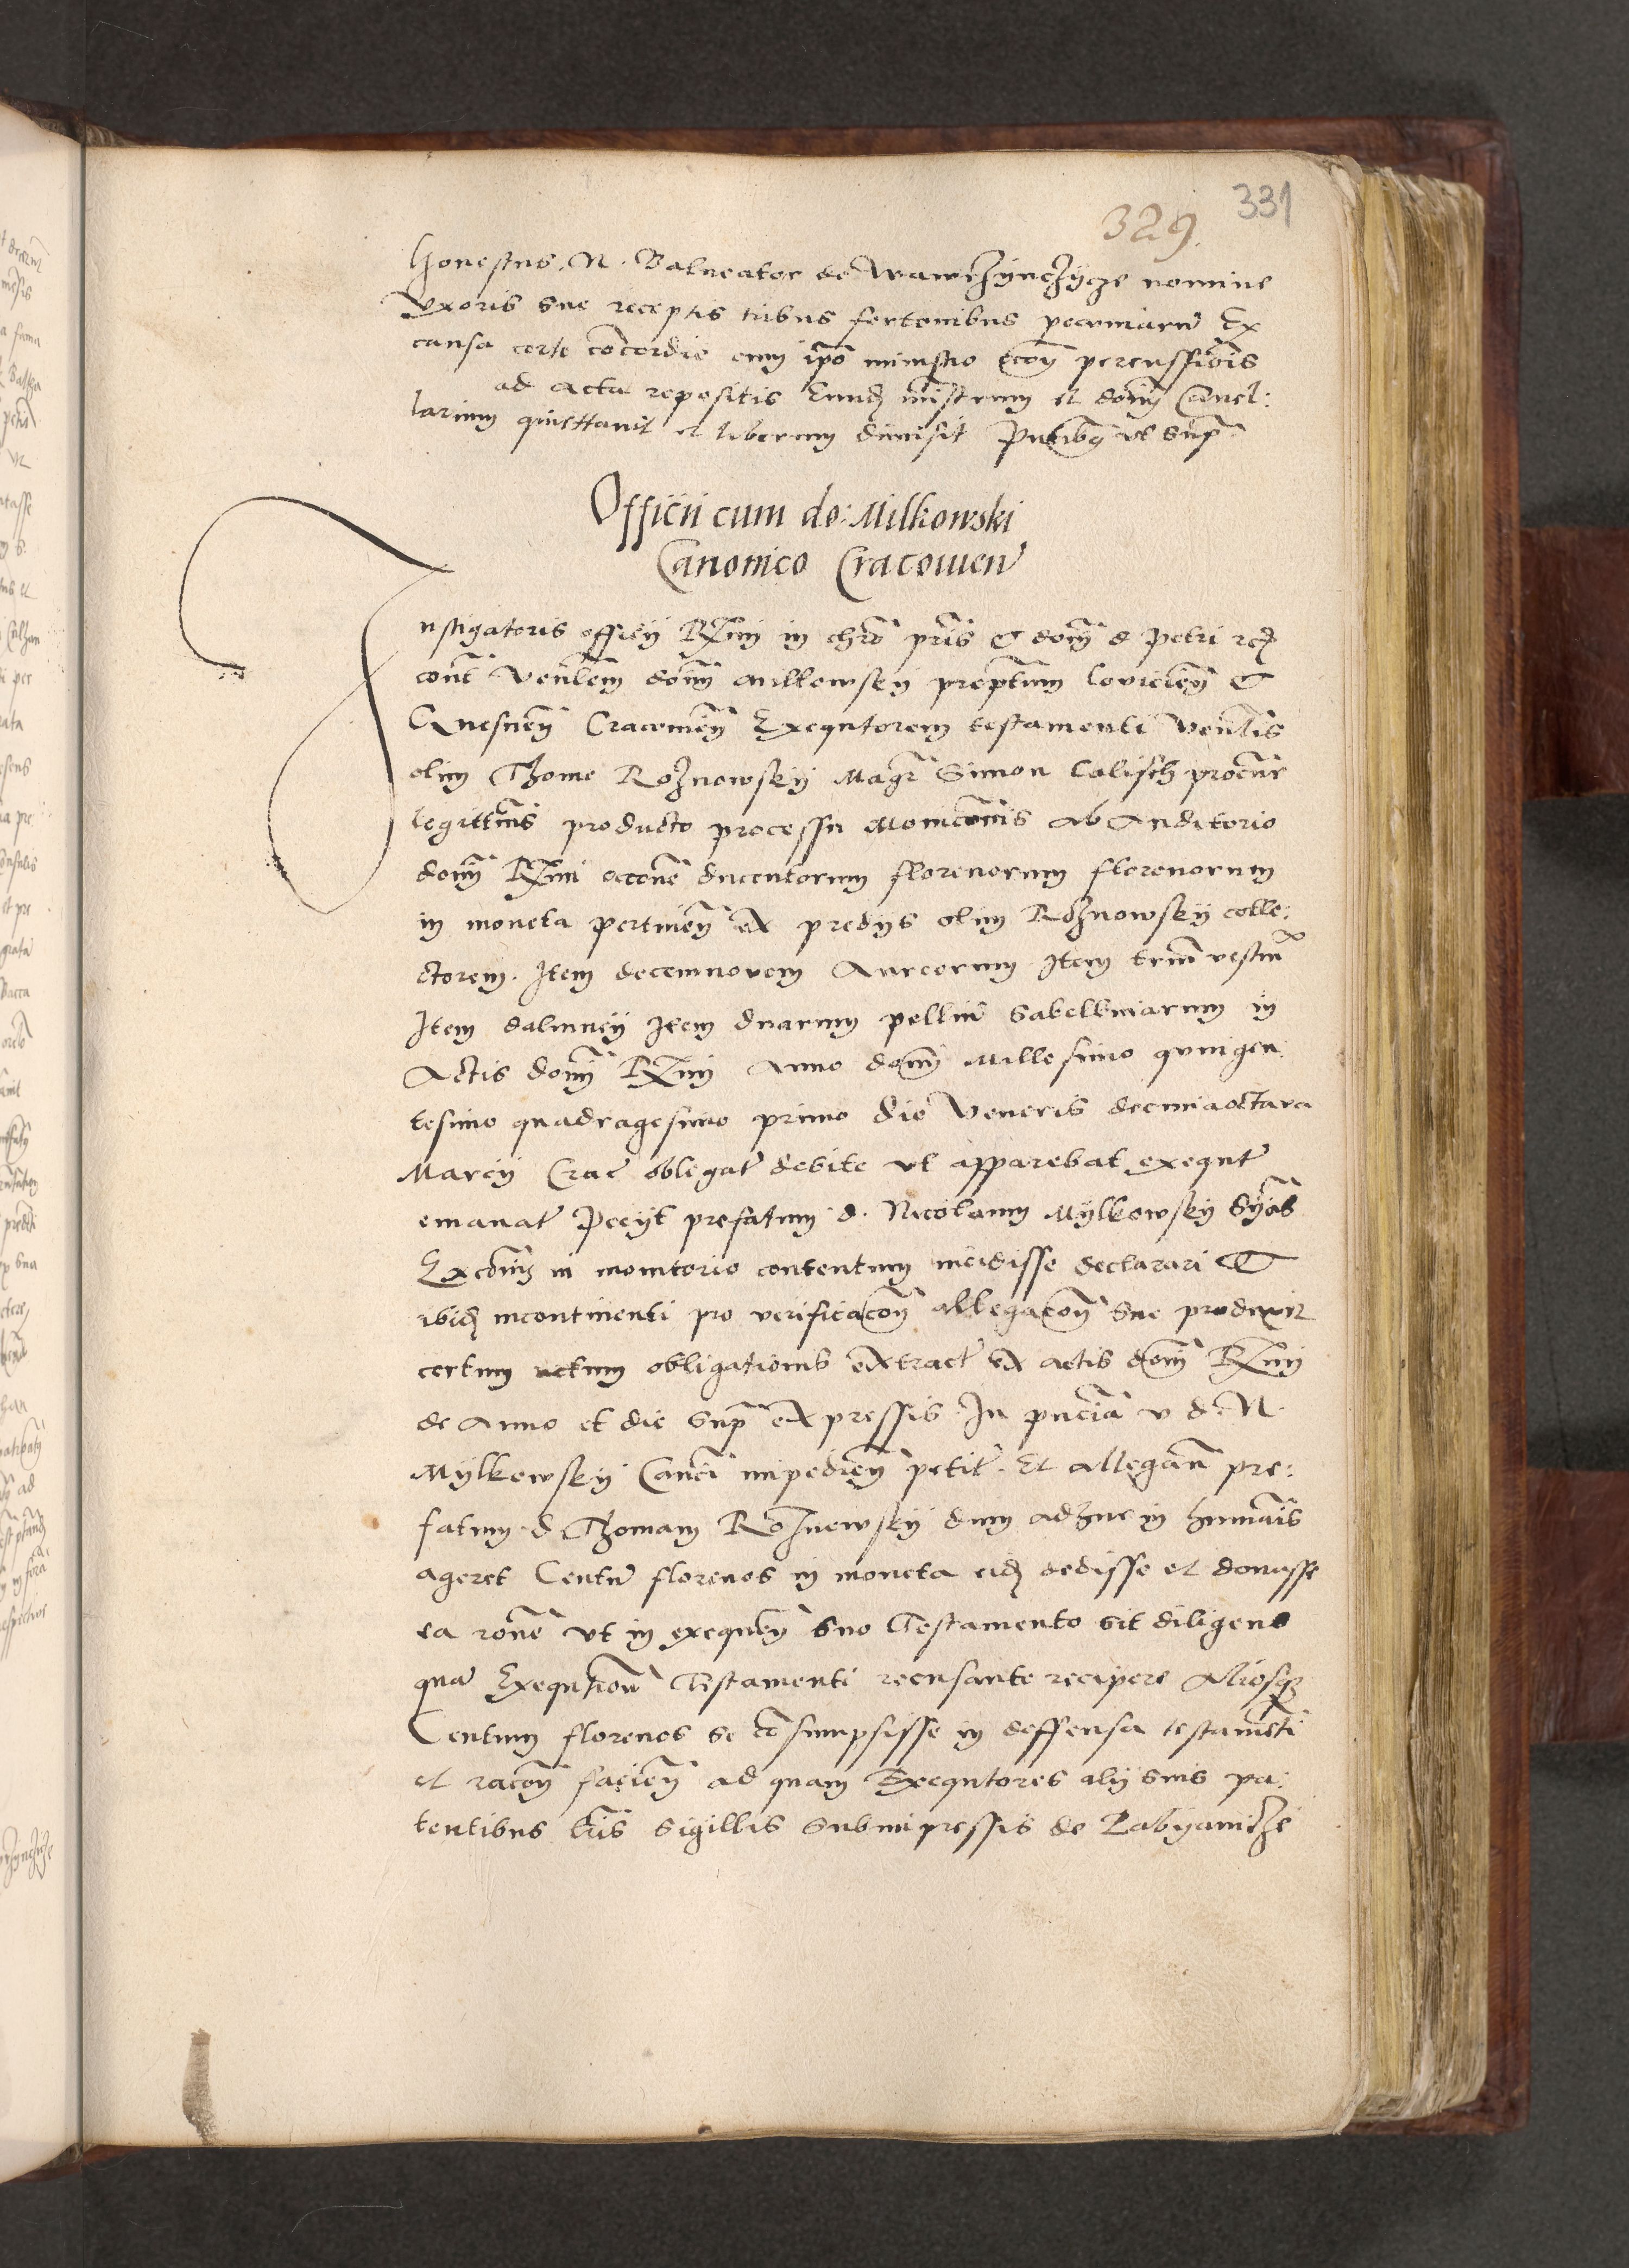 331
329
honestus N. Balneator de Wawrzynczycze nomine
Uxoris sue receptis tribus fertonibus pecuniarū Ex
causa certe cōcordie cum ipō ministro rcōn percussiōis
ad Acta repositis Eund ministrum et dom Cancel:
larium quiettavit et liberum dimisit Pntibq ut supr
Officii cum do: Milkowski
Canonico Cracovien
Instigatoris officij Rmi in chrō pris & dom d Petri
cont Venlem dom Milkowsky preptum loviciem &
Gnesnen Cracovien Exequtorem testamenti Venlis
olim Thome Roznowsky Magr Simon Calisch procur
legittims producto processu Monicōnis ab Auditorio
dom Rmi occōne ducentorum florenorum florenorum
in moneta pertinen ex predys olim Roznowsky colle:
ctorem. Item decemnovem Aureorum Item trium vestiu
Item Item duarum pelliū Sabellinarum in
Actis dom Rmi Anno dom Millesimo quingen:
tesimo quadragesimo primo die Veneris decimaoctava
Marcij Crac oblegat debite ut apparebat exequt
emanat Pecijt prefatum d. Nicolaum Mylkowsky
Excōm in monitorio contentum incidisse declarari &
ibid incontinenti pro verificacōn allegacōn sue produxit
certum actum obligationis extract ex actis dom Rmi
de Anno et die supr expressis In pncia v d. N.
Mylkowsky Canci impedien petit. Et allegan pre:
fatum d Thomam Roznowsky dum adhuc in humanis
ageret Centū florenos in moneta eid dedisse et donasse
ea rōne ut in exequen suo Testamento sit diligens
qua Exequtiōn Testamenti recusante recipere Aliosq
Centum florenos se cōsumpsisse in deffensa testamēti
et racōn facien ad quam Exequtores alij suis pa:
tentibus lris sigillis subimpressis de Pabyanicze